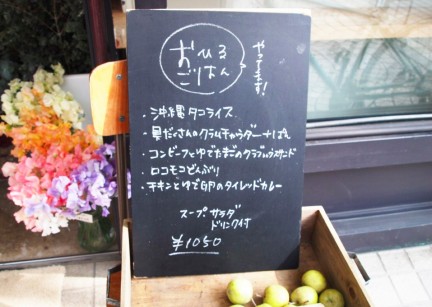 おひる
ごはん
やってます!
・沖縄タコライス
・具だくさんのクラムチャウダー+ぱん
・コンビーフとゆでたまごのクラブハウスサンド
・ロコモコどんぶり
・チキンとゆで卵のタイレッドカレー
スープ、サラダ
ドリンク付
¥1050